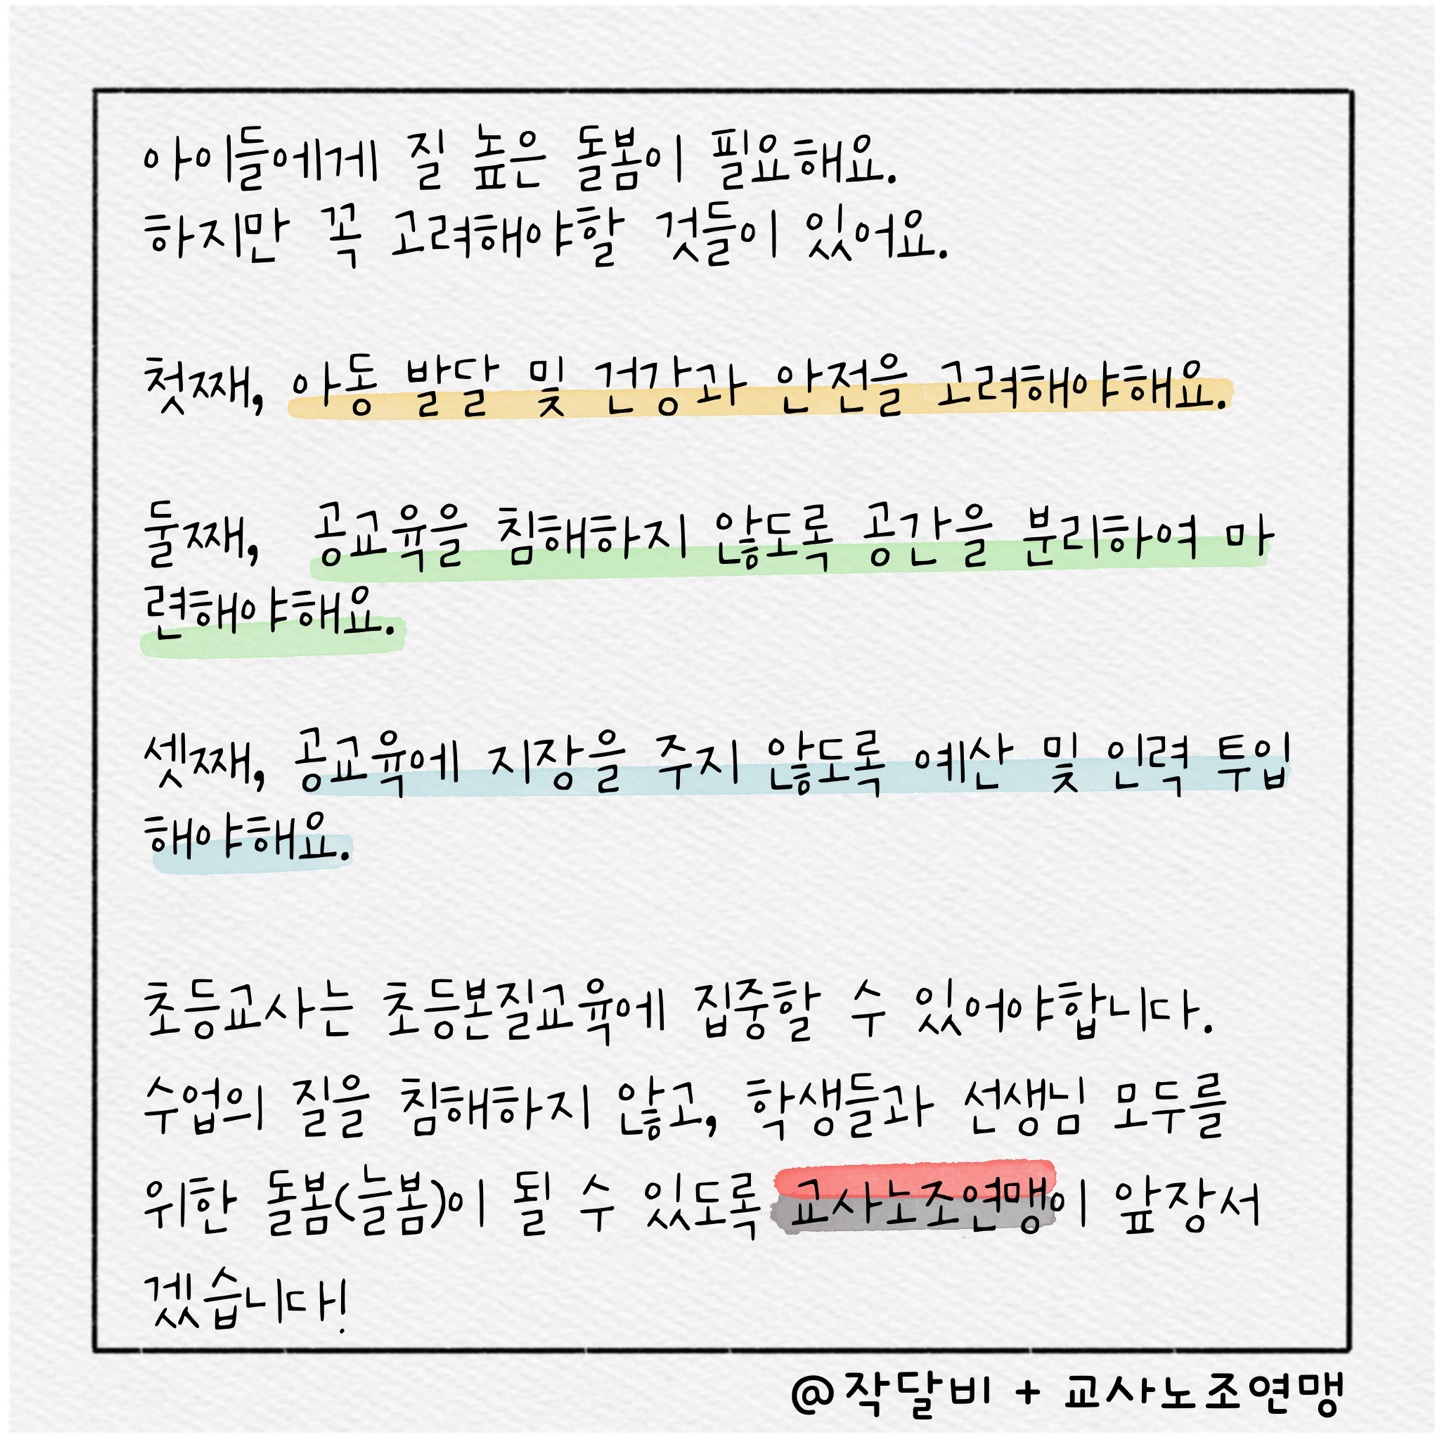 아이들에게 질 높은 돌봄이 필요해요.
하지만 꼭 고려해야할 것들이 있어요.
첫째, 아동 발달 및 건강과 안전을 고려해야해요.
둘째, 공교육을 침해하지 않도록 공간을 분리하여 마
련해야해요.
셋째, 공교육에 지장을 주지 않도록 예산 및 인력 투입
해야해요.
초등교사는 초등본질교육에 집중할 수 있어야합니다.
수업의 질을 침해하지 않고, 학생들과 선생님 모두를
위한 돌봄(늘봄)이 될 수 있도록 교사노조연맹이 앞장서
겠습니다!
@작달비 + 교사노조연맹